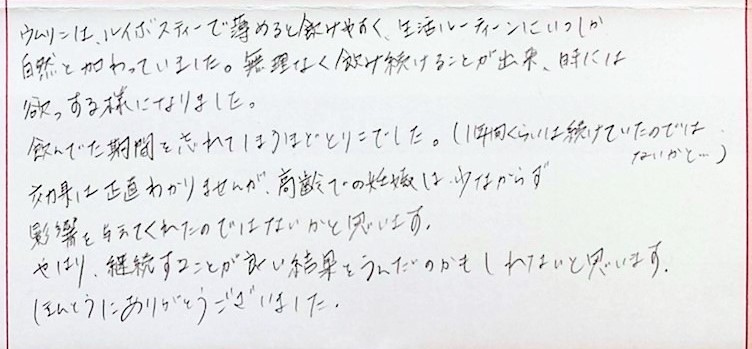 ウムリンは、ルイボスティーで薄めると飲みやすく、生活ルーティーンにいつしか
自然と加わっていました。無理なく飲み続けることが出来、時には
欲っする様になりました。
飲んでた期間を忘れてしまうほどとりこでした。(1年間くらいは続けていたのでは
ないかと…)
効果は正直わかりませんが、高齢での妊娠は、少なからず
影響を与えてくれたのではないかと思います。
やはり、継続することが良い結果をうんだのかもしれないと思います。
ほんとうにありがとうございました。